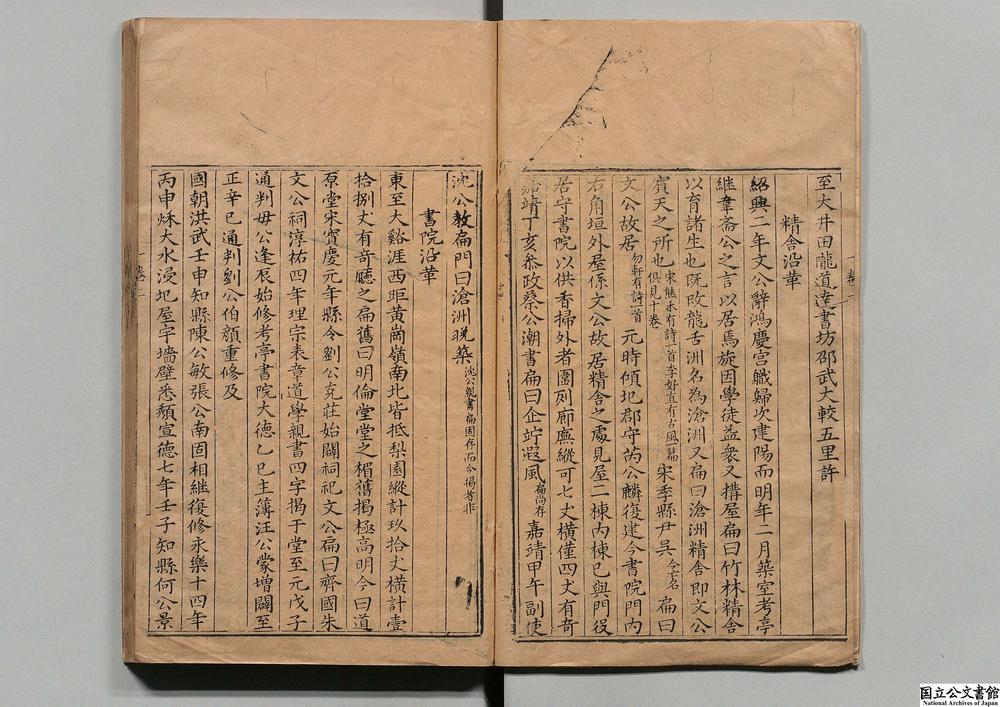 至大井田隴道達書坊邵武大較五里許
精舍沿革
紹興二年文公辭鴻慶宮職歸次建陽而明年二月築室考亭
継韋齋公之言以居焉旋因學徒益衆又搆屋扁曰竹林精舍
以育諸生也既改龍舌洲名為滄洲又扁曰滄洲精舍即文公
賓天之所也宋熊禾有詩一首李好直有古風一篇俱見十卷宋季縣尹吳今亡名扁曰
文公故居勿軒有詩首元時傾圮郡守芮公麟復建今書院門內
右角垣外屋係文公故居精舍之處見屋二棟內棟已與門役
居守書院以供香掃外者圊則廊廡縱可七丈橫僅四丈有奇
嘉靖丁亥叅政桑公潮書扁曰企竚遐風扁尚存嘉靖甲午副使
沈公教扁門曰滄洲晚築沈公親書扁固存而今揭者非
書院沿革
東至大谿涯西距黃崗嶺南北皆抵梨園縱計玖拾丈橫計壹
拾捌丈有奇廳之扁舊曰明倫堂堂之楣舊揭極高明今曰道
原堂宋寳慶元年縣令劉公克莊始闢祠祀文公扁曰齊國朱
文公祠淳祐四年理宗表章道學親書四字揭于堂至元戊子
通判毋公逢辰始修考亭書院大德乙巳主簿汪公蒙增闢至
正辛巳通判劉公伯顏重修及
國朝洪武壬申知縣陳公敏張公南固相継復修永樂十四年
丙申秌大水浸圮屋宇墻壁悉頽宣德七年壬子知縣何公景
国立公文書館
National Archives of Japan